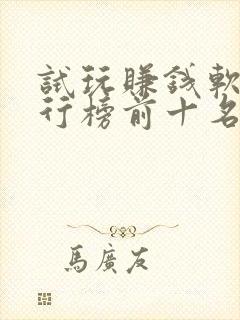 試玩賺錢軟
行榜前十名
馬廣友